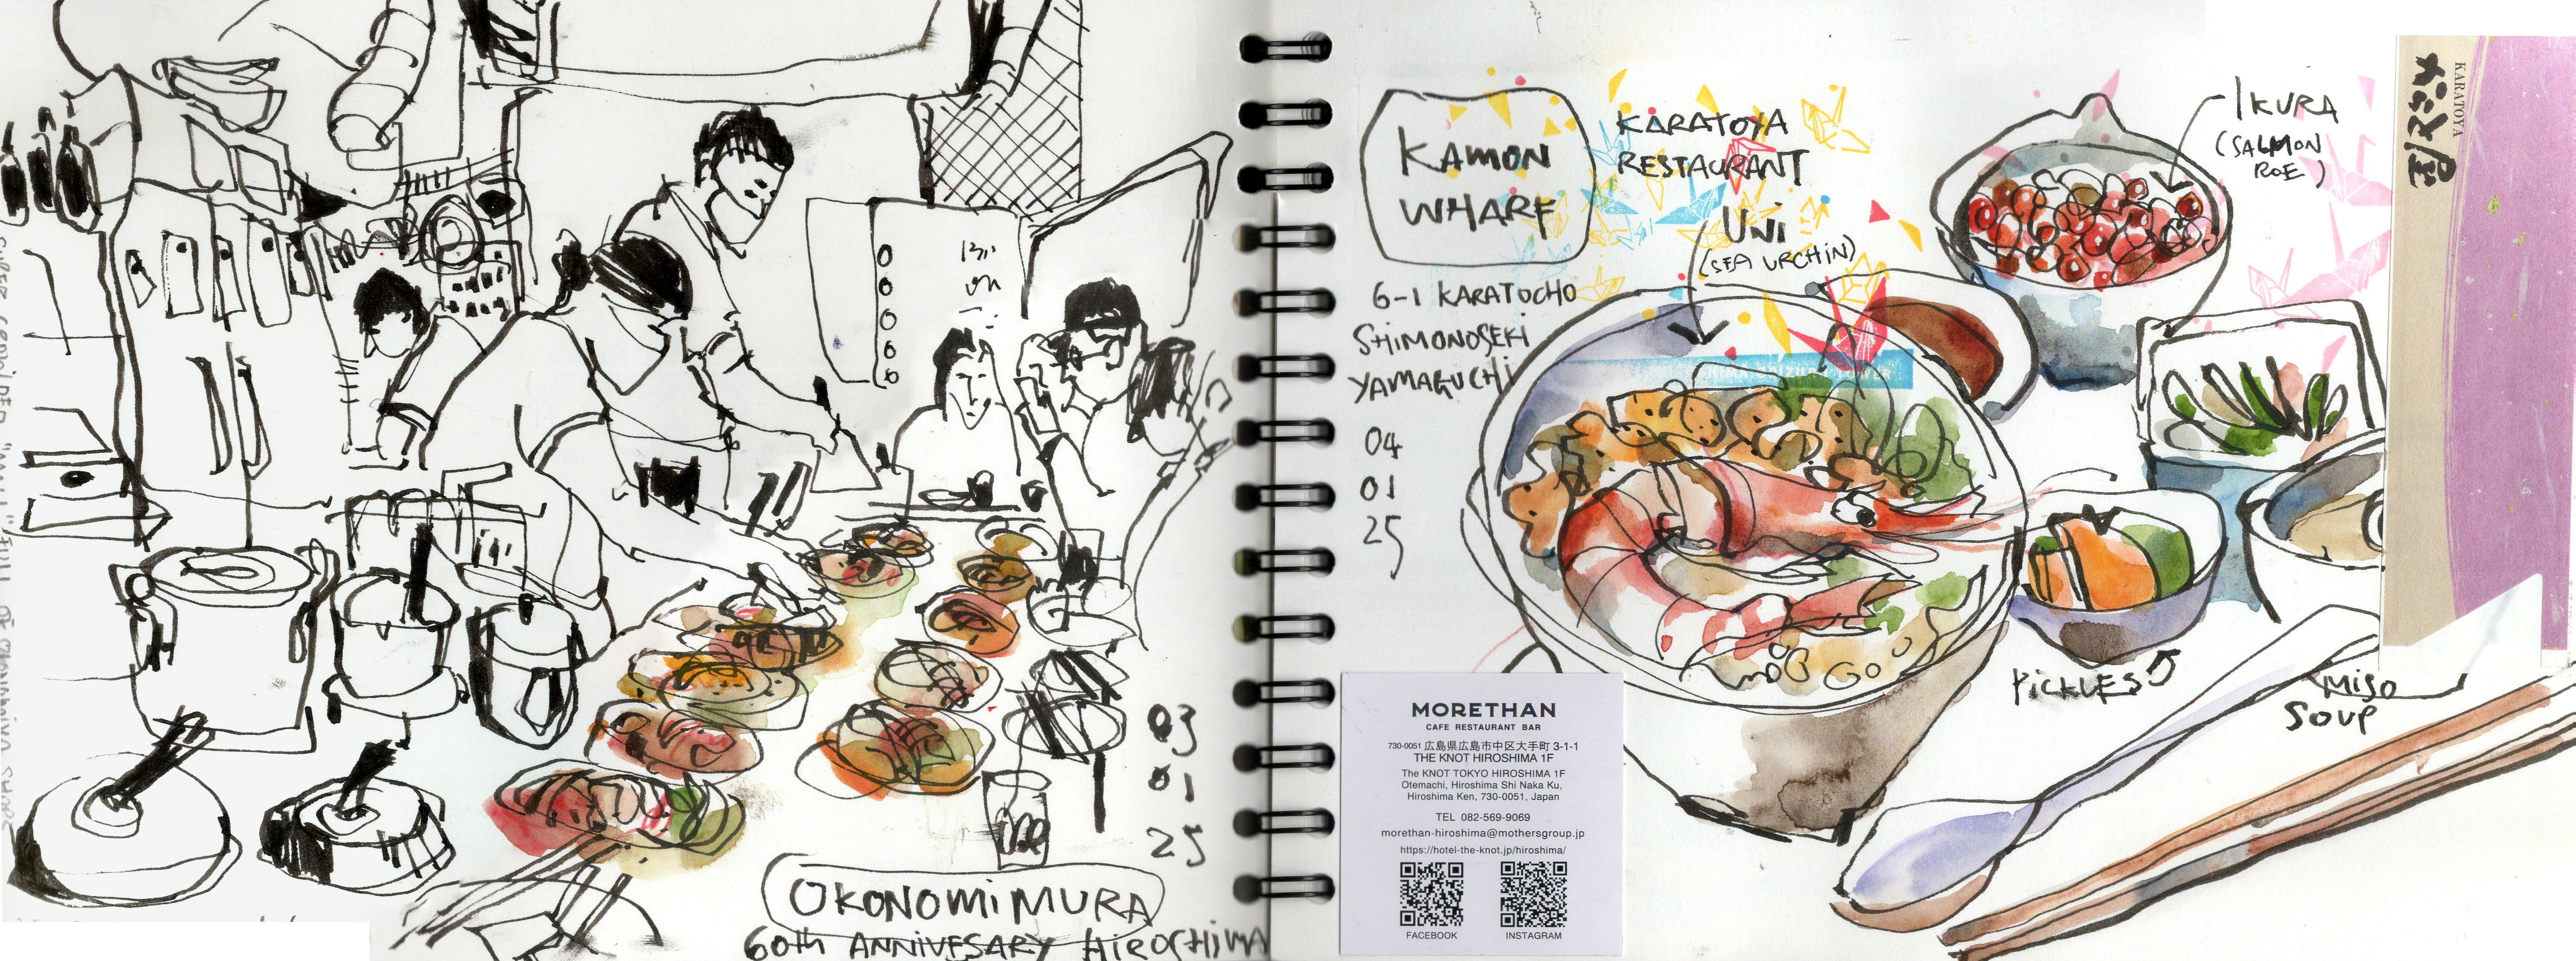 03
01
25
OKONOMiMURA
60th ANNIVESARY HiROSHiMA
KAMON
WHARF
KARATOYA
RESTAURANT
UNi
(SEA URCHIN)
6-1 KARATOCHO
SHiMONOSEKi
YAMAGUCHi
04
01
25
IKURA
(SALMON
ROE)
KARATOYA
PiCKLES
MiSO
SOUP
MORETHAN
CAFE RESTAURANT BAR
730-0051 広島県広島市中区大手町 3-1-1
THE KNOT HIROSHIMA 1F
The KNOT TOKYO HIROSHIMA 1F
Otemachi, Hiroshima Shi Naka Ku,
Hiroshima Ken, 730-0051, Japan
TEL 082-569-9069
morethan-hiroshima@mothersgroup.jp
https://hotel-the-knot.jp/hiroshima/
FACEBOOK
INSTAGRAM